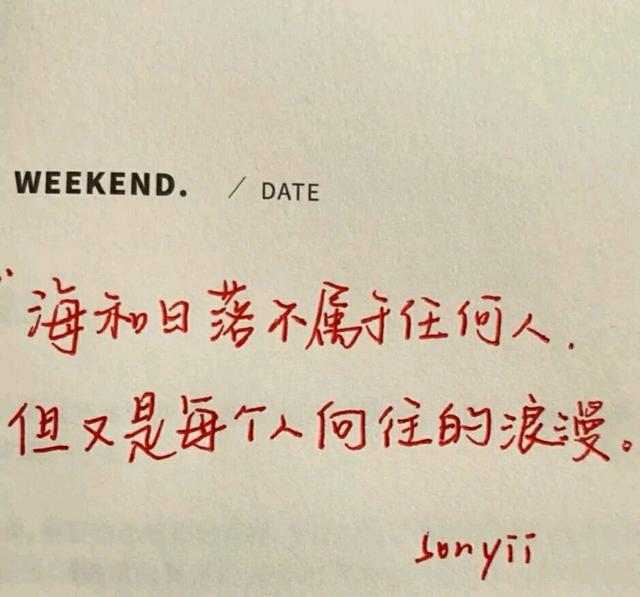 WEEKEND. / DATE
“海和日落不属于任何人.
但又是每个人向往的浪漫。
sonyii